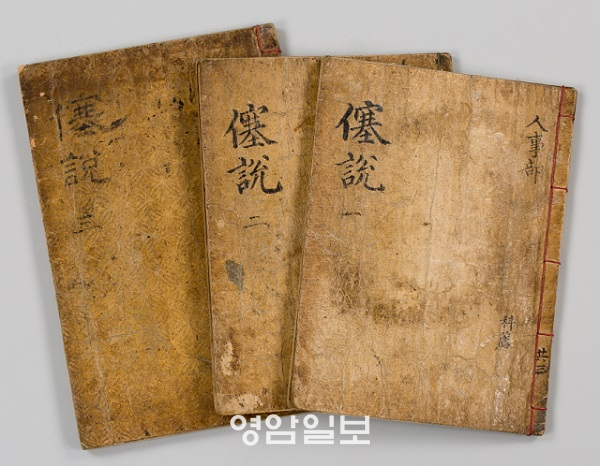 人事部
科薦
共三
僿說 一
僿說 二
僿說 三
영암일보